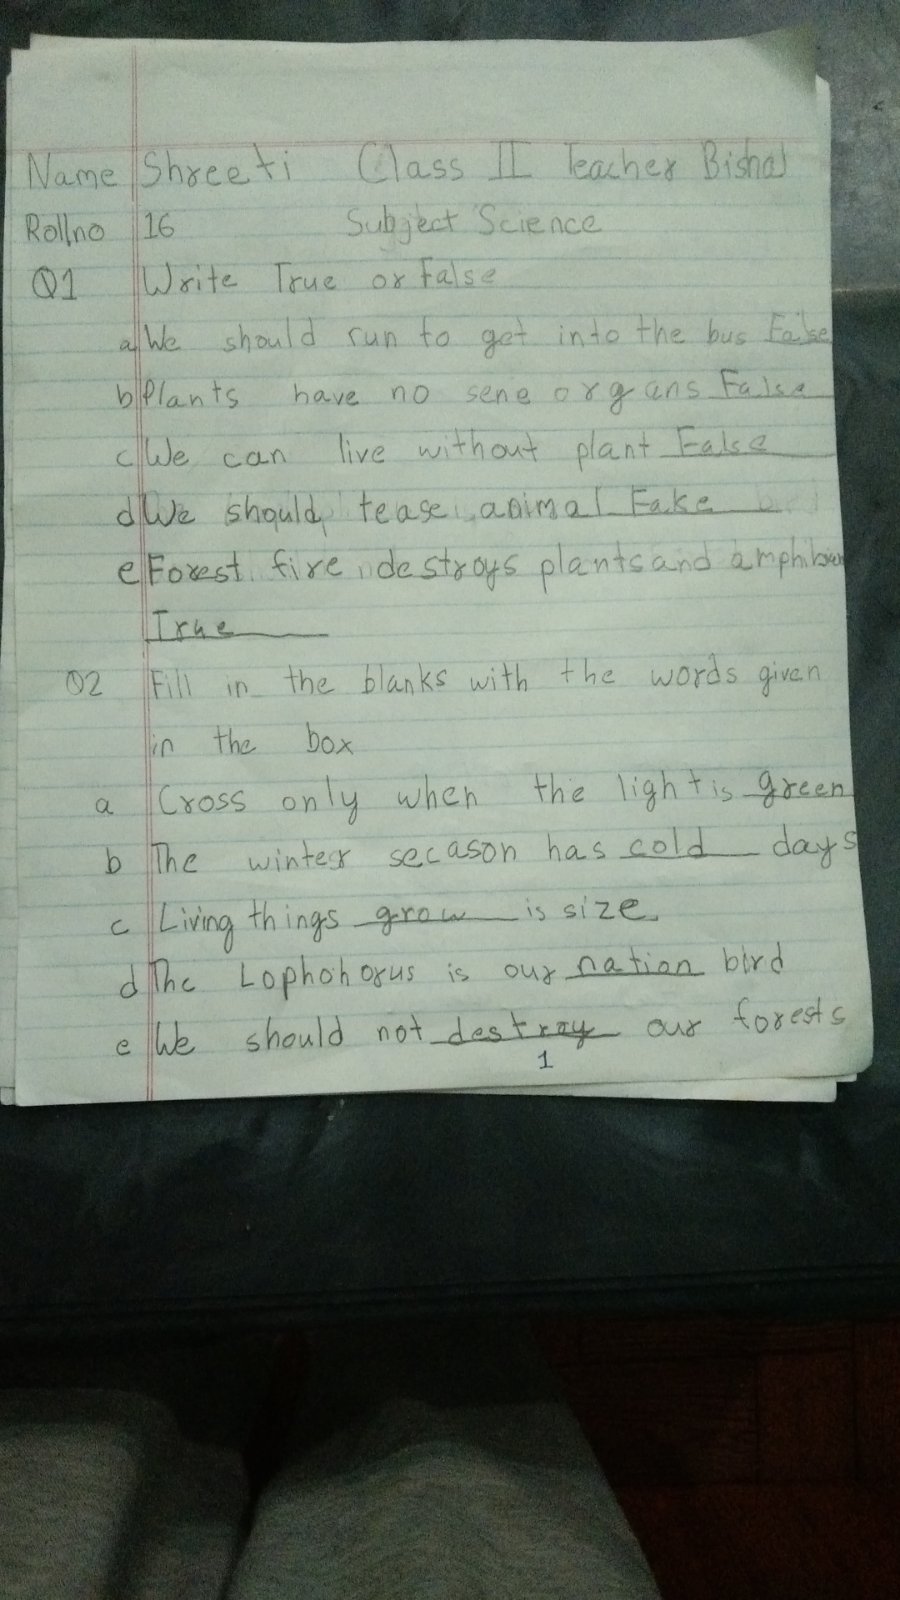 Name Shreeti Class II Teacher Bishal
Rollno 16 Subject Science
Q1 Write True or False
a We should run to get into the bus False
b Plants have no sene organs False
c We can live without plant False
d We should tease animal Fake
e Forest fire destroys plants and
True
Q2 Fill in the blanks with the words given
in the box
a Cross only when the light is green
b The winter secason has cold days
c Living things grow is size.
d The Lophohorus is our nation bird
e We should not destray our forests
1